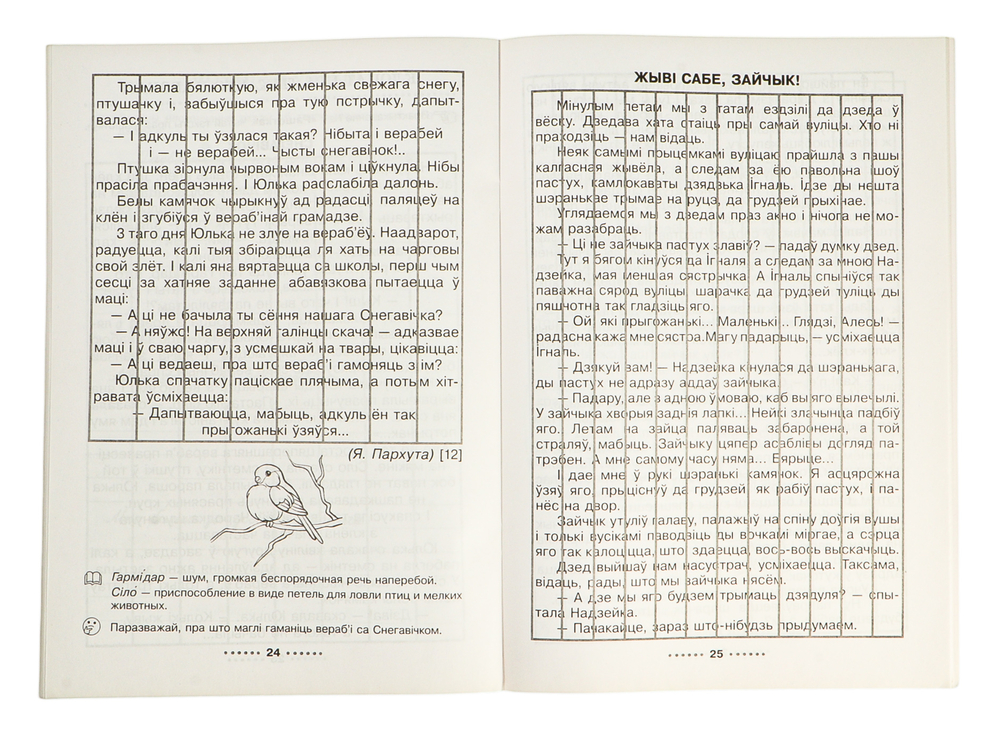 Трымала бялюткую, як жменька свежага снегу,
птушачку і, забыўшыся пра тую пстрычку, дапыт-
валася:
— І адкуль ты ўзялася такая? Нібыта і верабей
і — не верабей... Чысты снегавінок!..
Птушка зірнула чырвоным вокам і ціўкнула. Нібы
прасіла прабачэння. І Юлька расслабіла далонь.
Белы камячок чырыкнуў ад радасці, паляцеў на
клён і згубіўся ў вераб'інай грамадзе.
З таго дня Юлька не злуе на вераб'ёў. Наадварот,
радуецца, калі тыя збіраюцца ля хаты на чарговы
свой злёт. І калі яна вяртаецца са школы, перш чым
сесці за хатняе заданне, абавязкова пытаецца ў
маці:
— А ці не бачыла ты сёння нашага Снегавічка?
— А няўжо! На верхняй галінцы скача! — адказвае
маці і ў сваю чаргу, з усмешкай на твары, цікавіцца:
— А ці ведаеш, пра што вераб'і гамоняць з ім?
Юлька спачатку паціскае плячыма, а потым хіт-
равата ўсміхаецца:
— Дапытваюцца, мабыць, адкуль ён так
прыгожанькі ўзяўся...
(Я. Пархута) [12]
Гармі́дар — шум, громкая беспорядочная речь наперебой.
Сіло́ — приспособление в виде петель для ловли птиц и мелких
животных.
Паразважай, пра што маглі гаманіць вераб'і са Снегавічком.
•••••• 24 ••••••
ЖЫВІ САБЕ, ЗАЙЧЫК!
Мінулым летам мы з татам ездзілі да дзеда ў
вёску. Дзедава хата стаіць пры самай вуліцы. Хто ні
праходзіць — нам відаць.
Неяк самымі прыцемкамі вуліцаю прайшла з пашы
калгасная жывёла, а следам за ёю павольна ішоў
пастух, самлюкаваты дзядзька Ігналь. Ідзе ды нешта
шэранькае трымае на руцэ, да грудзей прыхінае.
Углядаемся мы з дзедам праз акно і нічога не мо-
жам разабраць.
— Ці не зайчыка пастух злавіў? — падаў думку дзед.
Тут я бягом кінуўся да Ігналя, а следам за мною На-
дзейка, мая меншая сястрычка. А Ігналь спыніўся так
паважна сярод вуліцы, шарачка да грудзей туліць ды
пяшчотна так гладзіць яго.
— Ой, які прыгожанькі... Маленькі... Глядзі, Алесь! —
радасна кажа мне сястра. Магу падарыць, — усміхаецца
Ігналь.
— Дзякуй вам! — Надзейка кінулася да шэранькага,
ды пастух не адразу аддаў зайчыка.
— Падару, але з адною ўмоваю, каб вы яго вылечылі.
У зайчыка хворыя заднія лапкі... Нейкі злачынца падбіў
яго. Летам на зайца паляваць забаронена, а той
страляў, мабыць. Зайчыку цяпер асаблівы догляд па-
трэбен. А мне самому часу няма... Бярыце...
І дае мне ў рукі шэранькі камячок. Я асцярожна
ўзяў яго, прыціснуў да грудзей, як рабіў пастух, і па-
нёс на двор.
Зайчык утуліў галаву, палажыў на спіну доўгія вушы
і толькі вусікамі паводзіць ды вочкамі міргае, а сэрца
яго так калоцца, што, здаецца, вось-вось выскачыць.
Дзед выйшаў нам насустрач, усміхаецца. Таксама,
відаць, рады, што мы зайчыка нясём.
— А дзе мы яго будзем трымаць, дзядуля? — спы-
тала Надзейка.
— Пачакайце, зараз што-нібудзь прыдумаем.
•••••• 25 ••••••